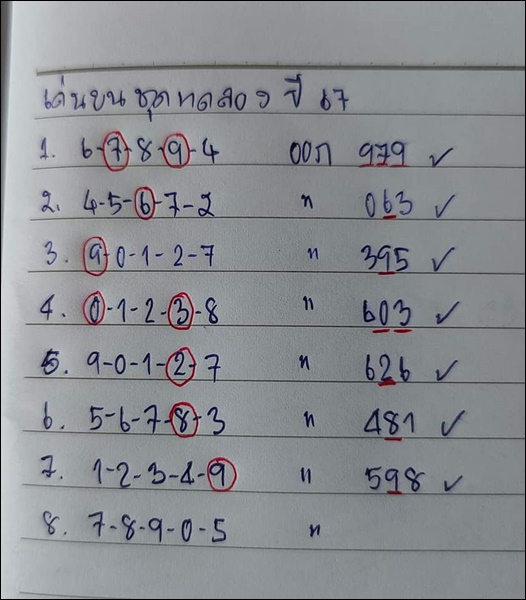 เด่นบนชุดทดสอง ปี 67
1. 6-7-8-9-4 ออก 979 ✓
2. 4-5-6-7-2 " 063 ✓
3. 9-0-1-2-7 " 395 ✓
4. 0-1-2-3-8 " 603 ✓
5. 9-0-1-2-7 " 626 ✓
6. 5-6-7-8-3 " 481 ✓
7. 1-2-3-4-9 " 598 ✓
8. 7-8-9-0-5 "